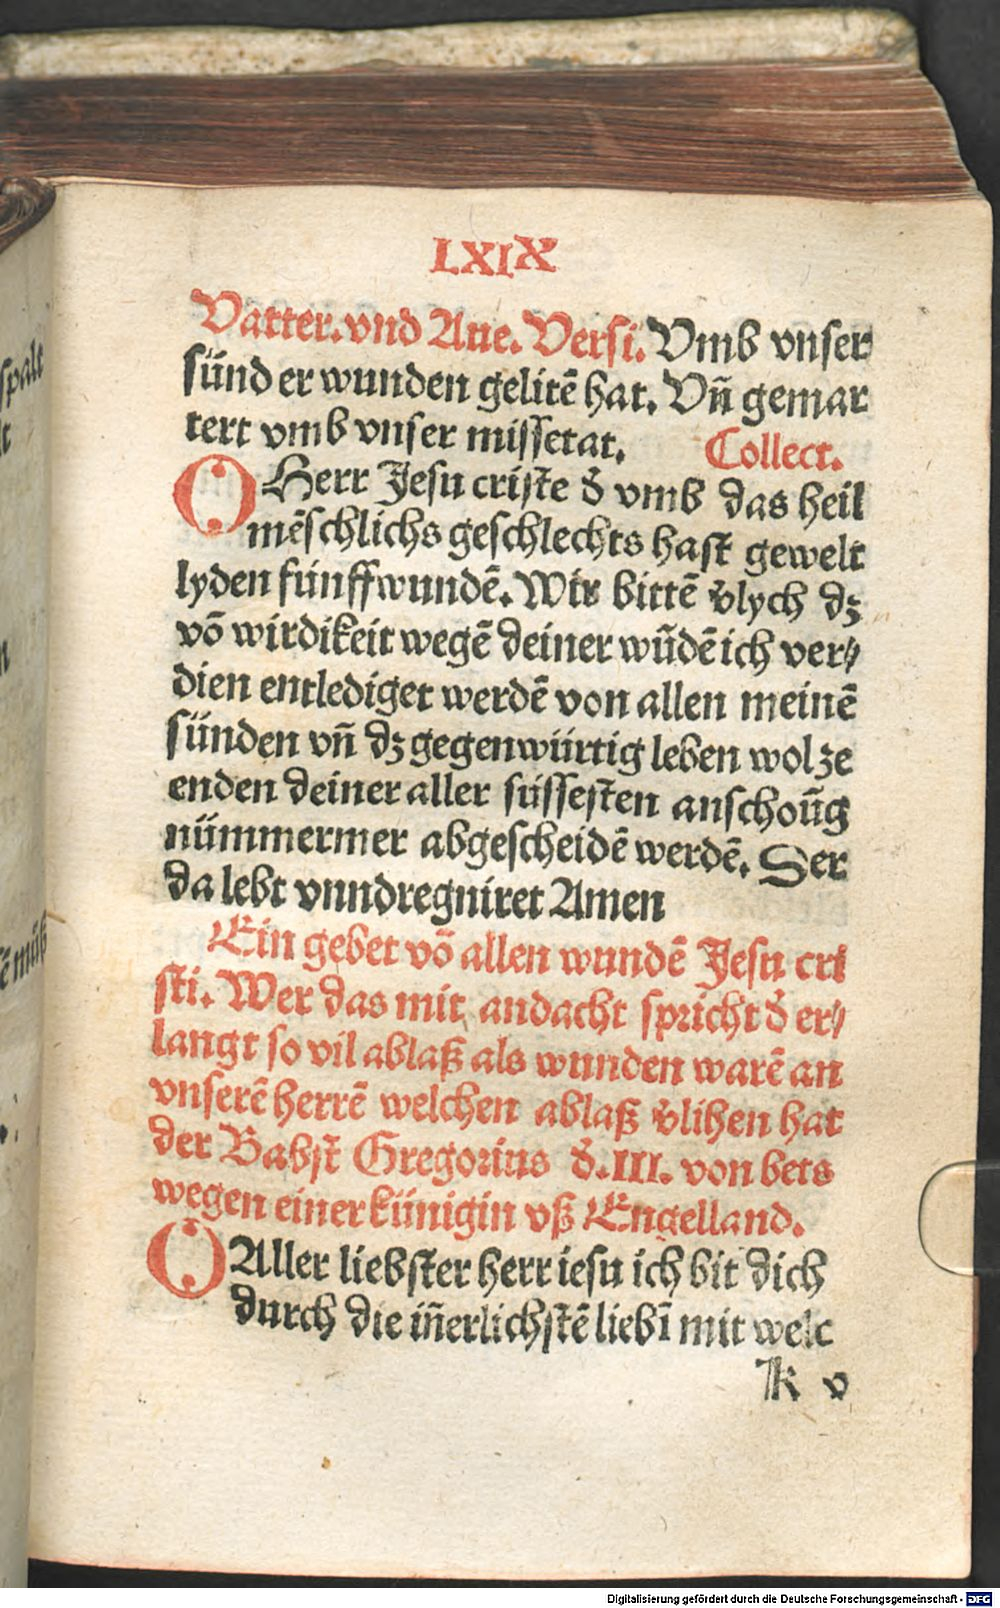 LXIX
Vatter.vnd Aue. Versi. Vmb vnser
sünd er wunden gelitē hat. Vñ gemar
tert vmb vnser missetat. Collect.
O Herr Jesu criste d̄ vmb das heil
mēschlichs geschlechts hast gewelt
lyden fünff wundē. Wir bittē v̄lych dz
vō wirdikeit wegē deiner wūdē ich ver⸗
dien entlediget werdē von allen meinē
sünden vñ dz gegenwürtig leben wol ze
enden deiner aller süssesten anschoūg
nümmermer abgescheidē werdē. Ser
da lebt vnnd regniret Amen
Ein gebet vō allen wundē Jesu cri
sti. Wer das mit andacht spricht d̄ er⸗
langt so vil ablaß als wunden warē an
vnserē herrē welchen ablaß v̄lihen hat
der Babst Gregorius d̄.III. von bets
wegen einer künigin vß Engelland.
O Aller liebster herr iesu ich bit dich
durch die iñerlichstē lieb ī mit welc
K v
spalt
Digitalisierung gefördert durch die Deutsche Forschungsgemeinschaft - DFG